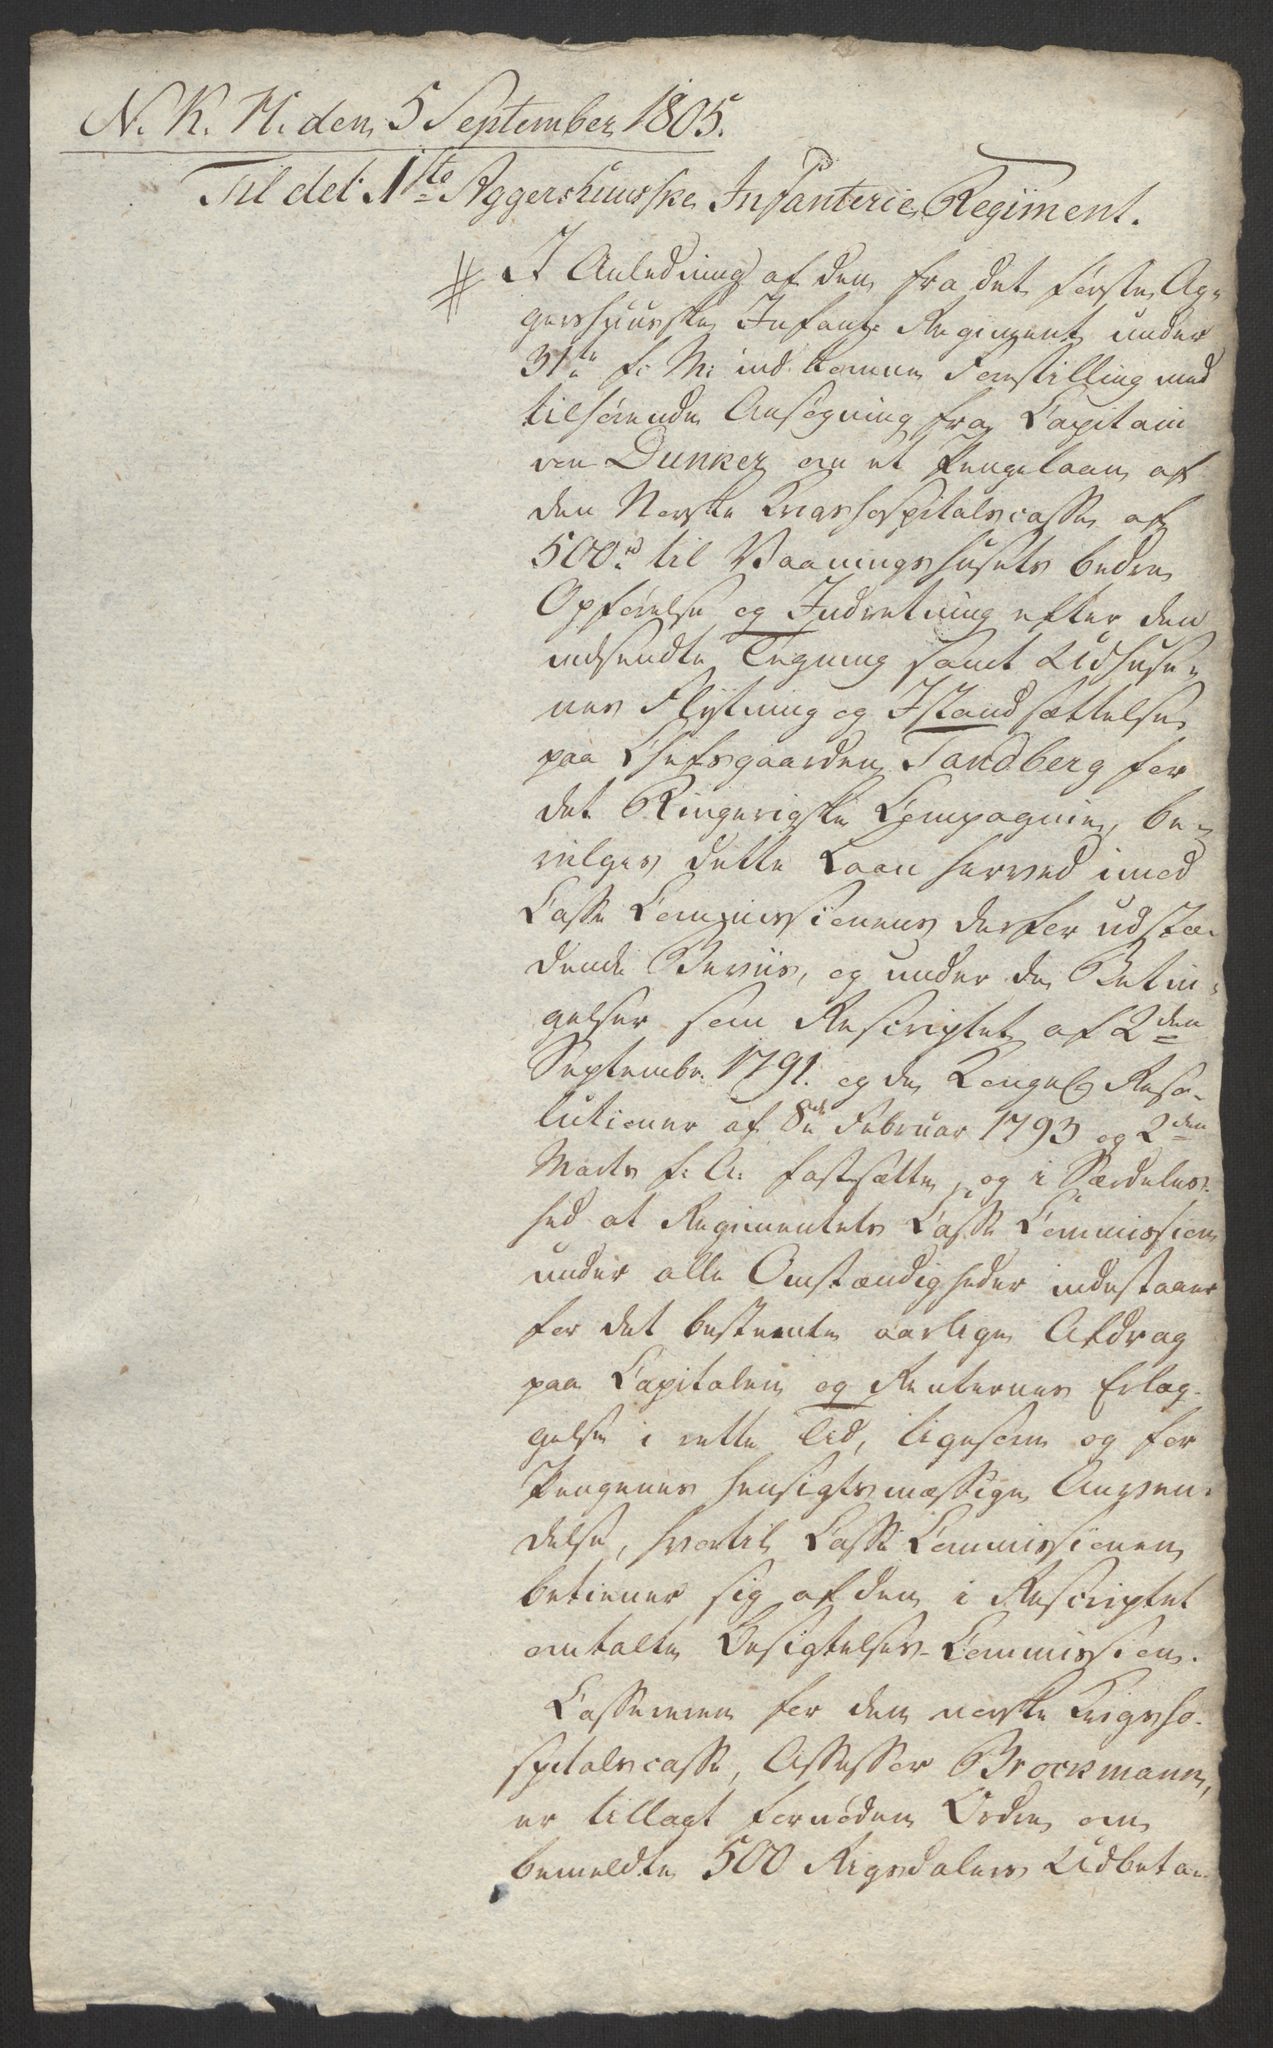 N. K. H. den 5 September 1805.
Til det 1ste Aggershuuske Infanterie Regiment.
I Anledning af den fra det første Ag-
gershuuske Infant: Regiment under
31te f: M: indkomne Forestilling med
tilhørende Ansøgning fra Capitain
von Dunker om et Pengelaan af
den Norske Krigshospitalscasse af
500 rd til Vaaningshusets bedre
Opførelse og Indretning efter den
indsendte Tegning samt Udhuse-
nes Flytning og Istandsættelse
paa Chefsgaarden Tandberg for
det Ringerigske Compagnie, be-
vilges dette Laan herved imod
Casse Commissionens derfor udstæ-
dende Beviis, og under de Betin-
gelser som Rescriptet af 2den
Septembr. 1791. og de Kongel. Reso-
lutioner af 8de Februar 1793 og 2den
Marts f: A: fastsætte, og i Særdeles-
hed at Regimentets Casse Commission
under alle Omstændigheder indestaaer
for det bestemte aarlige Afdrag
paa Capitalen og Renternes Erlæg-
gelse i rette Tid, ligesom og for
Pengenes hensigtsmæssige Anven-
delse, hvortil Casse Commissionen
betiener sig af den i Rescriptet
omtalte Besigtelses-Commission.
Casserern for den norske Krigsho-
spitalscasse, Assessor Brockmann,
er tillagt fornøden Ordre om
bemeldte 500 Rigsdalers Udbeta-